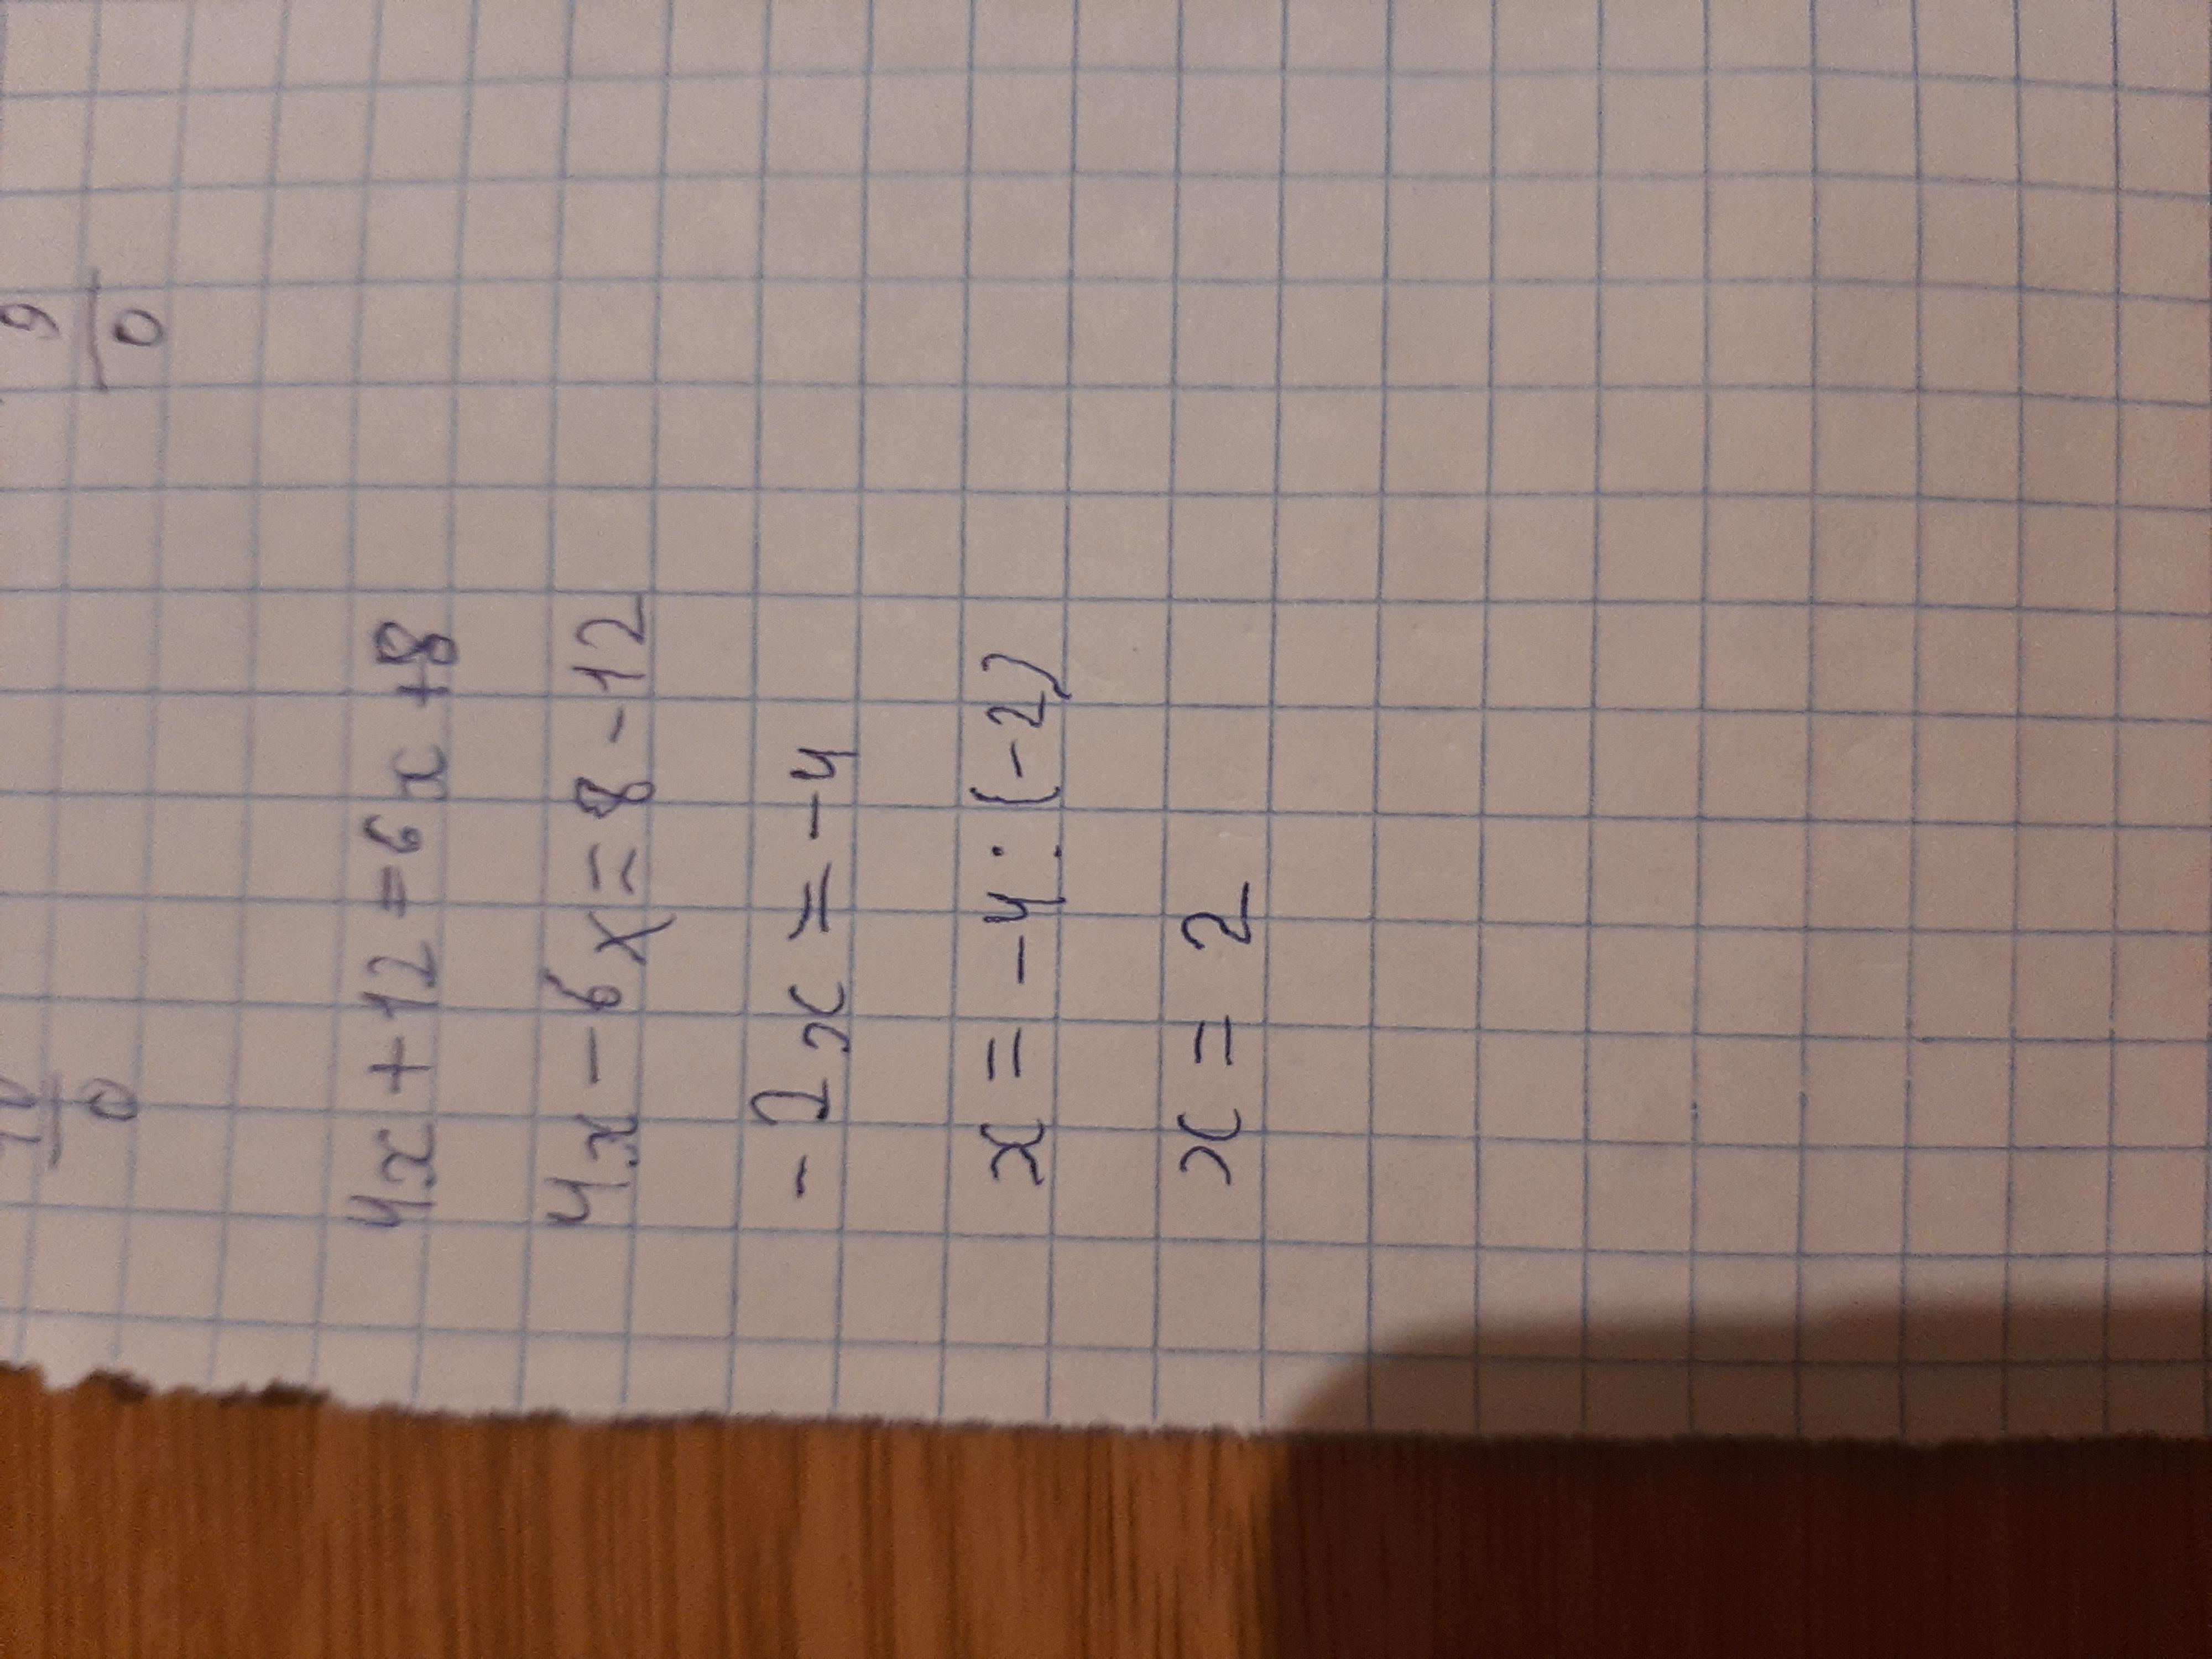 0 0
4x + 12 = 6x + 8
4x - 6x = 8 - 12
- 2x = - 4
x = - 4 : (-2)
x = 2